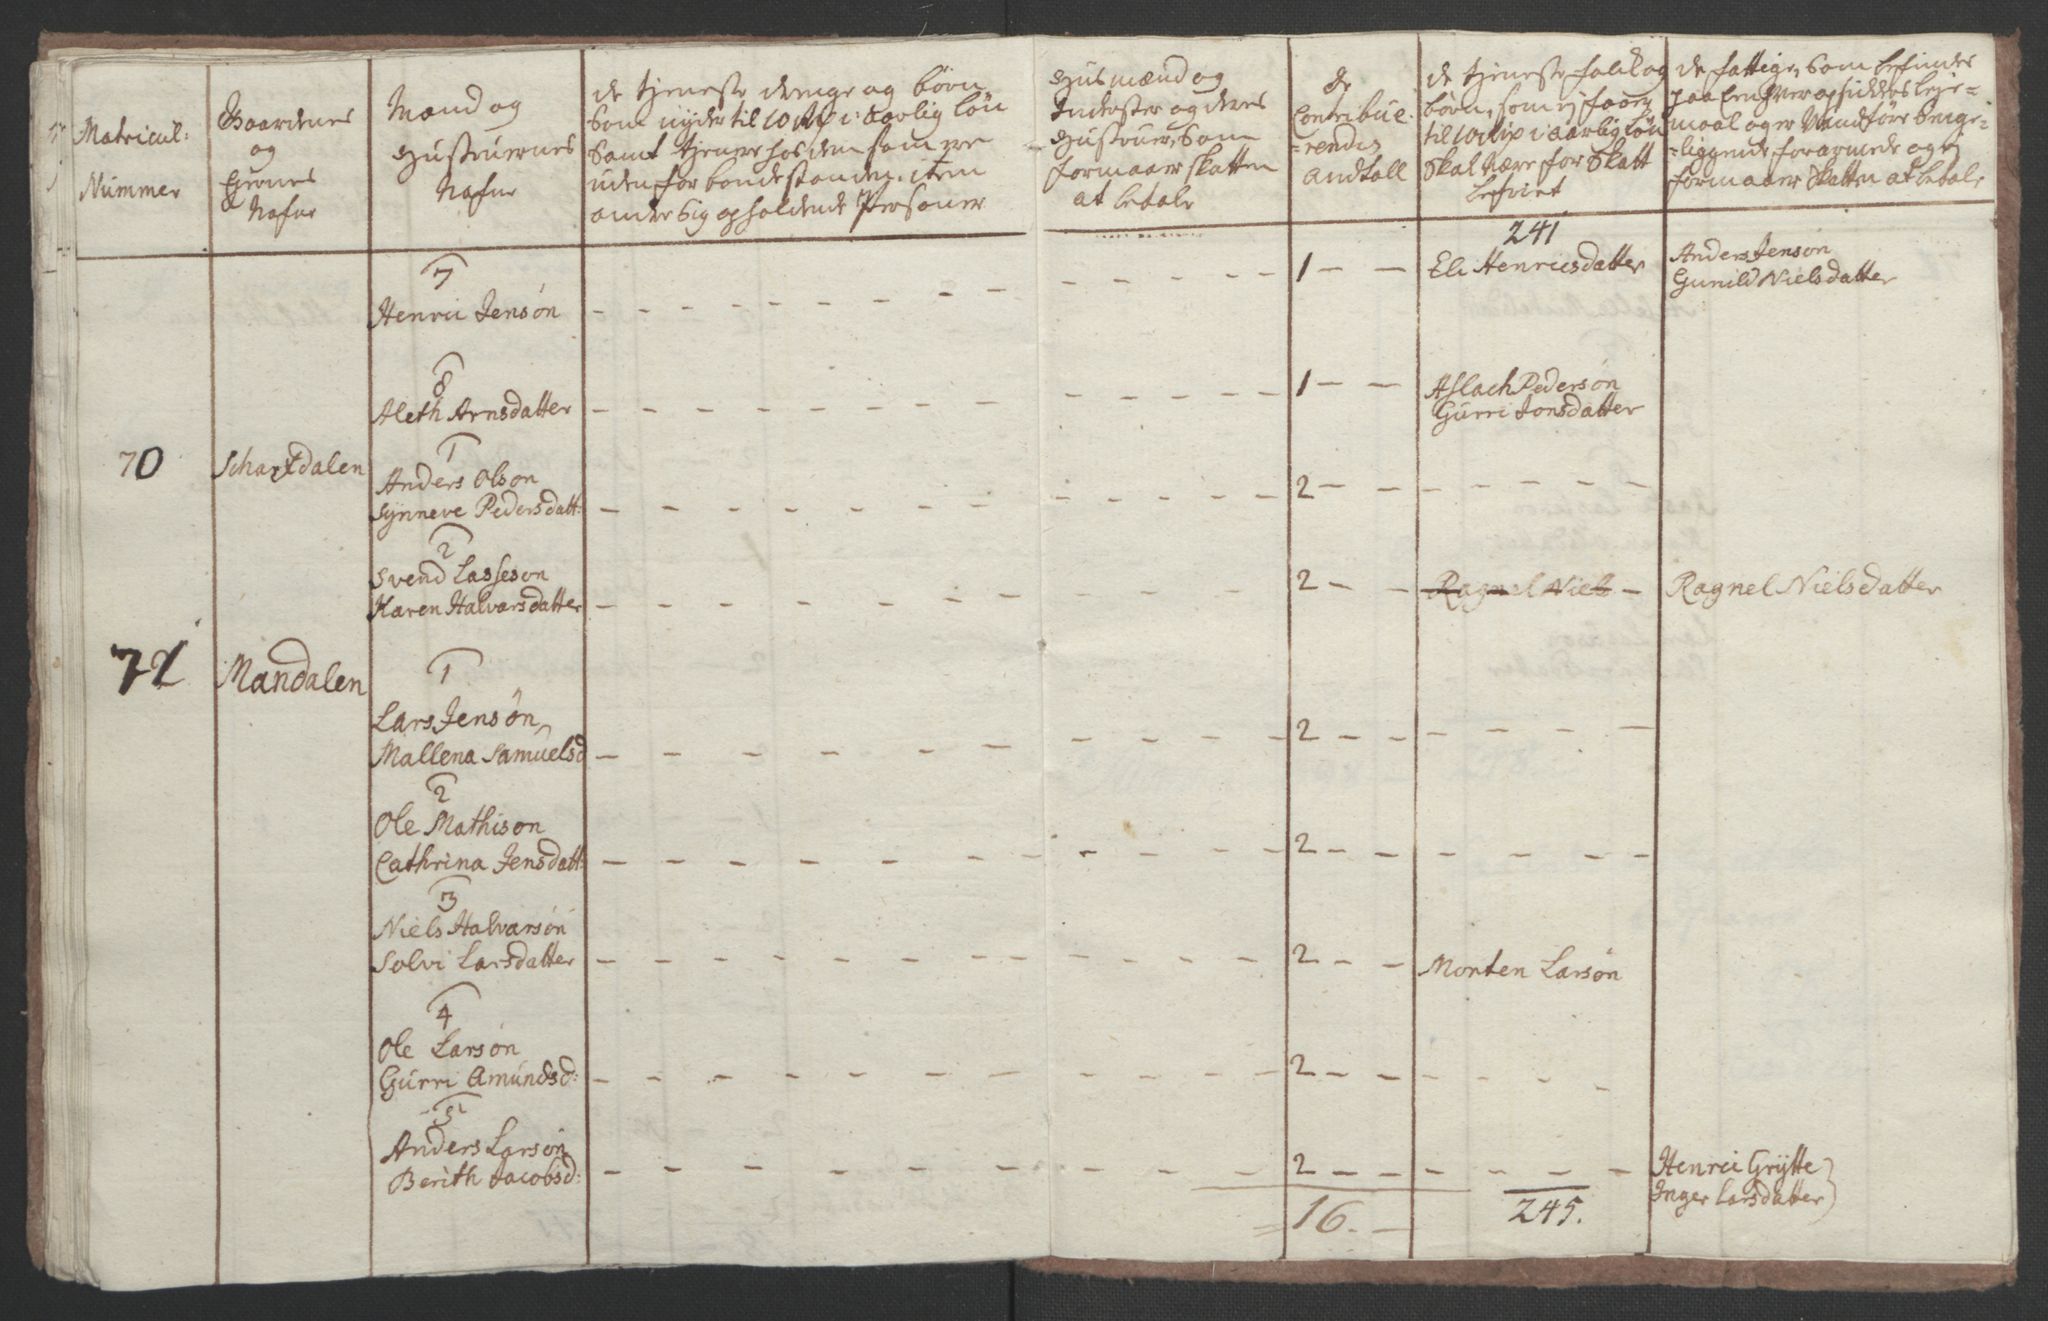 Matricul:
Nummer
Gaardenes
og
Eiernes
Nafne
Mænd og
Hustruernes
Nafne
de tjeneste drenge og børn
Som nyder til 10 rdl i aarlig løn
Samt tjener hos dem som ere
uden for bondestanden. item
andre Sig opholdende Personer
Huusmænd og
Inderster og deres
Hustruer, Som
formaaer skatten
at betale
de
Contribue-
=rendes
andtall
de tjeneste folk og
børn, som ej faaer
til 10 rdl i aarlig løn
Skal være for Skatt
befriet
de fattige, Som befindes
paa Enhver opsidders leje=
maal og er
=liggende forarmede og ej
formaaer Skatten at betale
241
7
Henric Jensøn - - - 1 - - Eli Henricsdatter
Anders Jensøn
Gunild Nielsdatter
8
Aleth Arnsdatter - - - 1 - - Aslach Pedersøn
Gurri Jonsdatter
70 Schartdalen
1
Anders Olson
Synneve Pedersdatt: - - - 2 - -
2
Svend Lasseson
Karen Halvarsdatter - - - 2 - - Ragnel Niels - Ragnel Nielsdatter
71 Mandalen
1
Lars Jensøn
Mallena Samuelsd - - - 2 - -
2
Ole Mathison
Cathrina Jensdatt: - - - 2 - -
3
Niels Halvarsøn
Solvi Larsdatter - - - 2 - - Morten Larsøn
4
Ole Larsøn
Gurri Amundsd: - - - 2 - -
5
Anders Larsøn
Berith Jacobsd: - - - 2 - - Henrei Grytte
Inger Larsdatter
16. - 245.